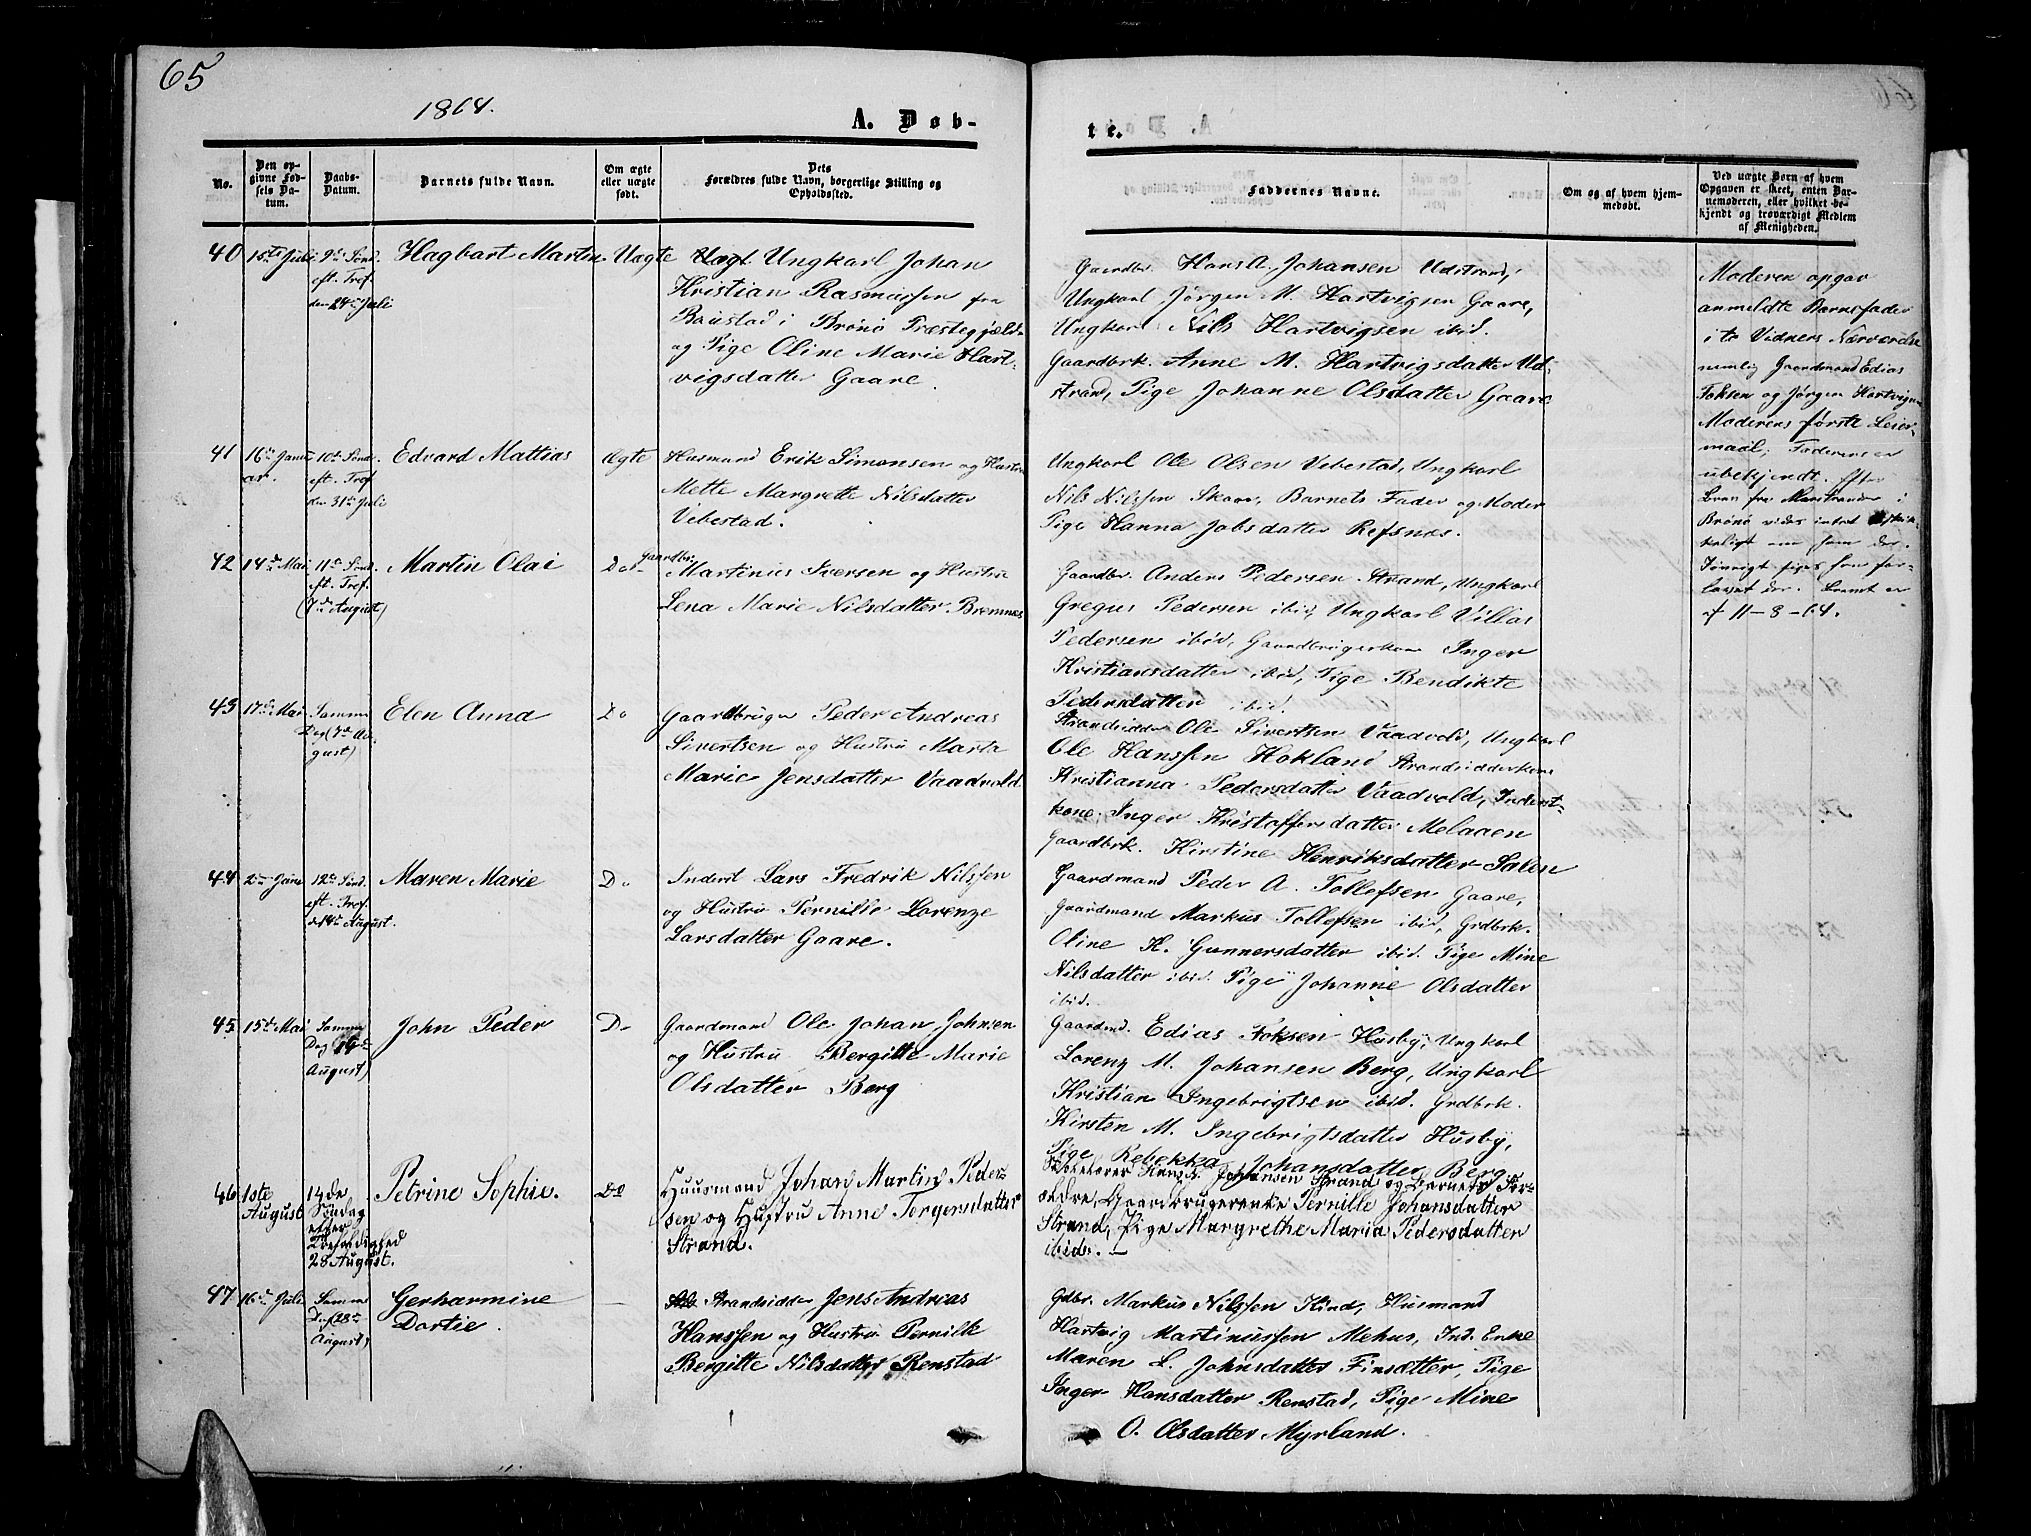 65
1864.
A. Døb-
te.
No.
Den op-
givne Fød-
sels Da-
tum.
Daabs-
Datum.
Barnets fulde Navn.
Om ægte
eller uægte
født.
Dets
Forældres fulde Navn, borgerlige Stilling og
Opholdssted.
Faddernes Navne.
Om og af hvem hjem-
medøbt.
Ved uægte Børn af hvem
Opgaven er skeet, enten Bar-
nemoderen, eller hvilket be-
kjendt og troværdigt Medlem
af Menigheden.
40
15de Juli
9de Sønd.
eft. Tref.
den 24de Juli
Hagbart Martin
Uægte
Ungkarl Johan
Kristian Rasmussen fra
Baustad i Brønø Præstegjæld
og Pige Oline Marie Hart-
vigsdatter Gaare.
Gaardbr. Hans A. Johansen Udstrand,
Ungkarl Jørgen M. Hartvigsen Gaare,
Ungkarl Nils Hartvigsen ibid.
Gaardbrk. Anne M. Hartvigsdatter Ud-
strand, Pige Johanne Olsdatter Gaare
Moderen opgav
anmeldte Barnefader
i to Vidners Nærværelse
nemlig Gaardmand Edias
Foksen og Jørgen Hartvigsen
Moderens første Leier-
maal; Faderens er
ubekjendt. Efter
Brev fra
Brønø vides intet
keligt om ham der.
11-8-64.
41
16de Janu-
ar.
10de Sønd.
eft. Tref.
den 31te Juli
Edvard Mattias
Ægte
Husmand Erik Simonsen og Hustru
Mette Margrette Nilsdatter
Vebestad.
Ungkarl Ole Olsen Vebestad, Ungkarl
Nils Nilssen Skaar, Barnets Fader og Moder
Pige Hanna Jakobsdatter Refsnæs.
42
14de Mai
11te Sønd.
eft. Tref.
(7de August)
Martin Olai
Do
Gaardbr.
Martinus Iversen og Hustru
Lena Marie Nilsdatter Bremnes
Gaardbr. Anders Pedersen Strand, Ungkarl
Gregus Pedersen ibid, Ungkarl Villas
Pedersen ibid, Gaardbrugerkone Inger
Kristiansdatter ibid, Pige Bendikte
Pedersdatter ibid.
43
17de Mai
Samme
Dag (7de Au-
gust)
Elen Anna
Do
Gaardbruger Peder Andreas
Sivertsen og Hustru Marta
Marie Jensdatter Vaadvold
Strandsidder Ole Sivertsen Vaadvold, Ungkarl
Ole Hanssen Hokland Strandsidderkone
Kristianna Pedersdatter Vaadvold, Inderst-
kone Inger Kristoffersdatter Melaaen
Gaardbrk. Kirstine Henriksdatter Salen
44
2den Juni
12te Sønd.
eft. Tref.
d. 14de August.
Maren Marie
Do
Inderst Lars Fredrik Nilssen
og Hustru Pernille Lorenze
Larsdatter Gaare.
Gaardmand Peder A. Tollefsen Gaare,
Gaardmand Markus Tollefsen ibid, Grdbrk.
Oline K. Gunnersdatter ibid. Pige Mine
Nilsdatter ibid. Pige Johanne Olsdatter
ibid.
45
15de Mai
Samme
Dag (14de
August)
John Peder
Do
Gaardmand Ole Johan Johnsen
og Hustru Bergitte Marie
Olsdatter Berg
Gaardmd. Edias Foksen Husby, Ungkarl
Lorenz M. Johansen Berg, Ungkarl
Kristian Ingebrigtsen ibid. Grdbrk.
Kirsten M. Ingebrigtsdatter Husby,
Pige Rebekka Johansdatter Berg
46
1ste
August
14de
Søndag
efter
Trefoldighed
28 August.
Petrine Sophie.
Do
Huusmand Johan Martin Peder-
sen og Hustru Anne Torgersdatter
Strand.
Skolelærer Hans A. Johansen Strand og Barnets For-
ældre, Gaardbrugerenke Pernille Johansdatter
Strand, Pige Margrethe Maria Pedersdatter
ibid. —
47
16de Juli
Samme
Dag (28de
August)
Gerharmine
Dortie.
—
Strandsidder Jens Andreas
Hanssen og Hustru Pernille
Bergitte Nilsdatter Renstad
Gdbr. Markus Nilssen Kind, Husmand
Hartvig Martinussen Mehus, Ind. Enke
Maren L. Johnsdatter Finsætter, Pige
Inger Hansdatter Renstad, Pige Mine
O. Olsdatter Myrland.